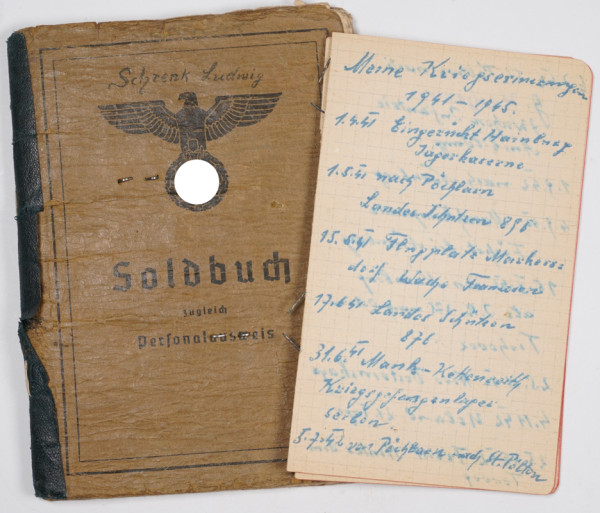 Schrenk Ludwig
Soldbuch
zugleich
Personalausweis
Meine Kriegserinnerungen
1941 – 1945.
1.4.41 Eingerückt Hainburg
Jägerkaserne
1.5.41 nach Pöchlarn
Landes Schützen
15.5.41 Flugplatz Markers-
dorf Wache
17.6.41 Landes Schützen
876
31.6.41 Mank-
Kriegsgefangenlager
Serben
5.7.41 von Pöchlarn nach St. Pölten